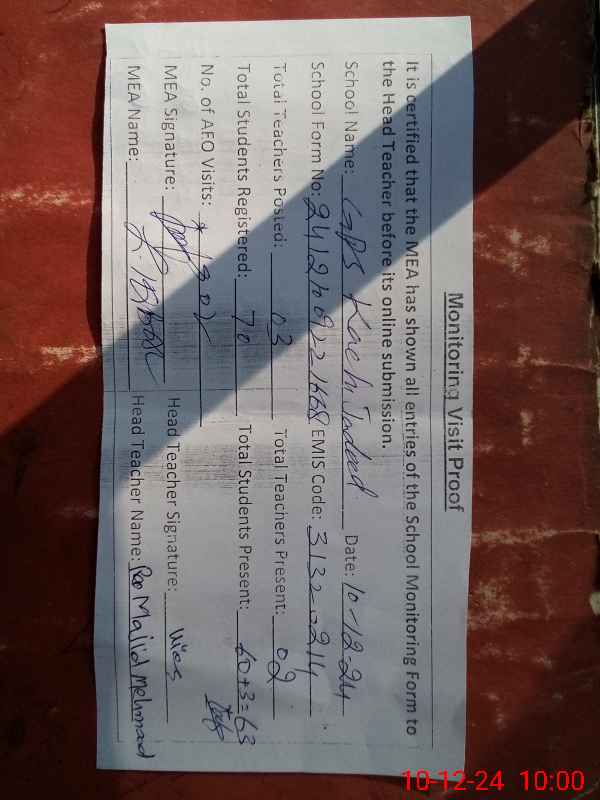 Monitoring Visit Proof
It is certified that the MEA has shown all entries of the School Monitoring Form to
the Head Teacher before its online submission.
School Name: GPS Kachi Jadeed Date: 10-12-24
School Form No: EMIS Code: 31320214
Total Teachers Posted: 03 Total Teachers Present: 02
Total Students Registered: 70 Total Students Present: 60+3=63
No. of AEO Visits:
MEA Signature: Head Teacher Signature:
MEA Name: Head Teacher Name: Rao Majid Mehmood
10-12-24 10:00